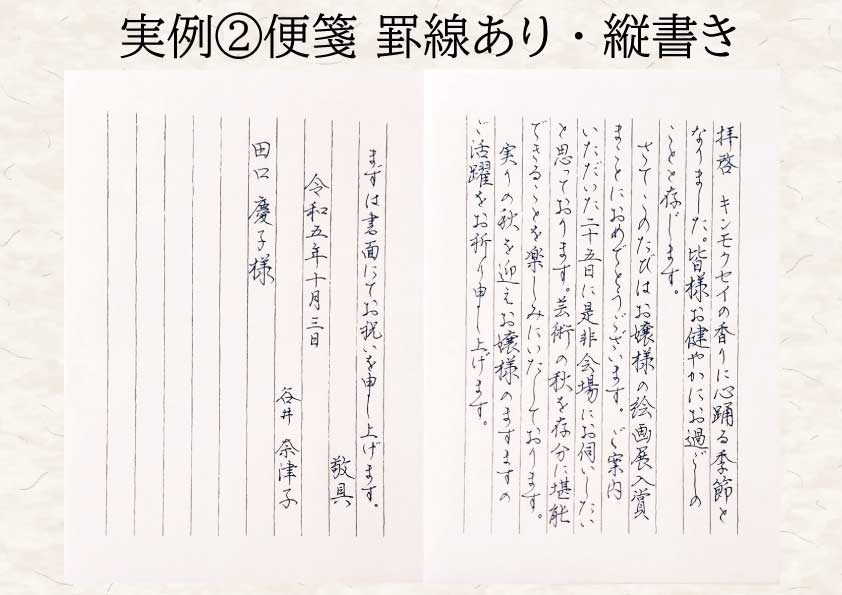 実例②便箋 罫線あり・縦書き
拝啓 キンモクセイの香りに心踊る季節と
なりました。皆様お健やかにお過ごしの
ことと存じます。
さてこのたびはお嬢様の絵画展入賞
まことにおめでとうございます。ご案内
いただいた二十五日に是非会場にお伺いしたい
と思っております。芸術の秋を存分に堪能
できることを楽しみにいたしております。
実りの秋を迎えお嬢様のますますの
ご活躍をお祈り申し上げます。
まずは書面にてお祝いを申し上げます。
敬具
令和五年十月三日
谷井 奈津子
田口 慶子様